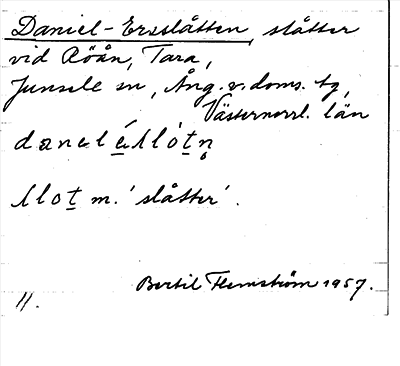 Daniel-Ersslåtten, slåtter
vid Röån, Tara,
Junsele sn, Ång. v. doms. tg,
Västernorrl. län
slot m. 'slåtter'.
Bertil Flemström 1957.
11.